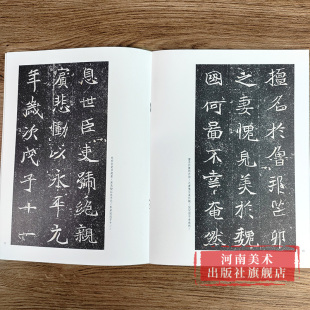 擅名於魯邦些卯
之妻愧見美於魏
國何啚不幸奄然
息世臣吏踊絶親
賓悲慟以永平元
年歲次戊子十一
河南美术
出版社旗舰店